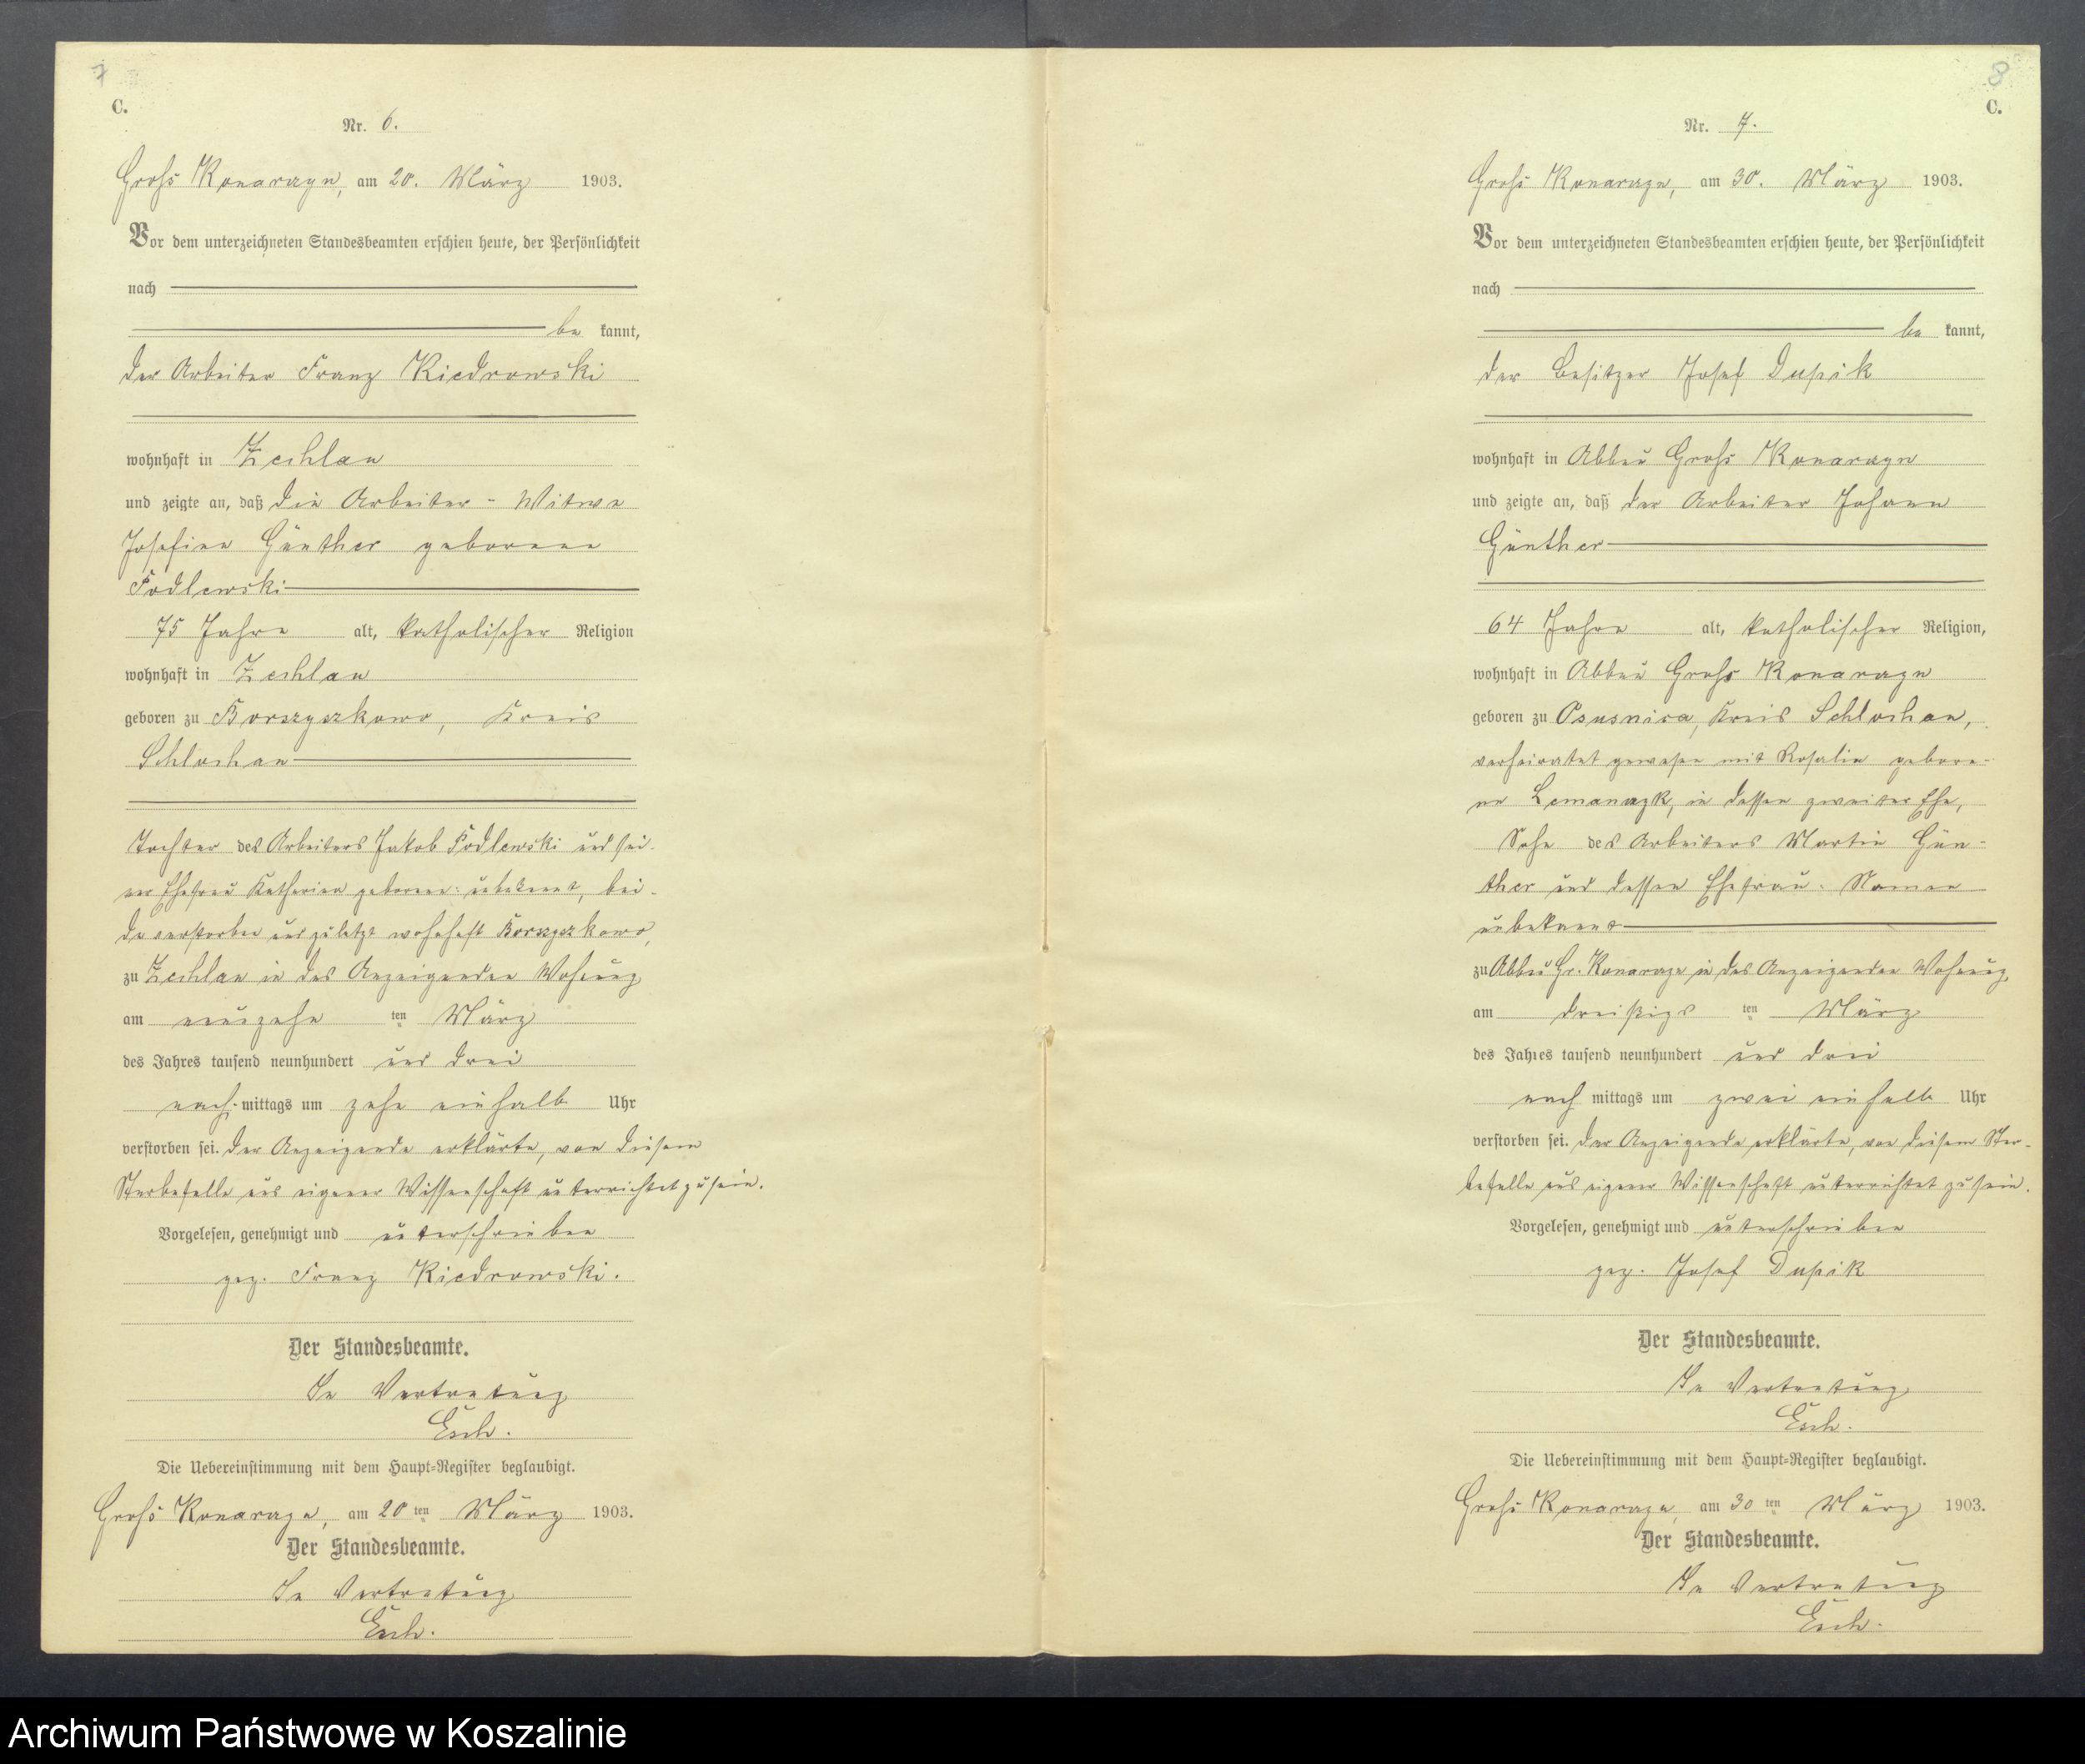 7
C.
Nr. 6.
Groß Konarzyn, am 20. März 1903.
Vor dem unterzeichneten Standesbeamten erschien heute, der Persönlichkeit
nach
be kannt,
der Arbeiter Franz Kiedrowski
wohnhaft in Zechlau
und zeigte an, daß die Arbeiter-Witwe
Josefine Günther geborene
Podlewski
75 Jahre alt, katholischer Religion
wohnhaft in Zechlau
geboren zu Borszyszkowo, Kreis
Schlochau
Tochter des Arbeiters Jakob Podlewski und sei-
ner Ehefrau Katharina geborene: unbekannt, bei-
de verstorben und zuletzt wohnhaft Borszyszkowo,
zu Zechlau in des Anzeigenden Wohnung
am neunzehn ten März
des Jahres tausend neunhundert und drei
nach mittags um zehn einhalb Uhr
verstorben sei. Der Anzeigende erklärte, von diesem
Sterbefalle aus eigener Wissenschaft unterrichtet zu sein.
Vorgelesen, genehmigt und unterschrieben
gez. Franz Kiedrowski.
Der Standesbeamte.
In Vertretung
Esch.
Die Uebereinstimmung mit dem Haupt-Register beglaubigt.
Groß Konarzyn, am 20 ten März 1903.
Der Standesbeamte.
In Vertretung
Esch.
8
C.
Nr. 7.
Groß Konarzyn, am 30. März 1903.
Vor dem unterzeichneten Standesbeamten erschien heute, der Persönlichkeit
nach
be kannt,
der Besitzer Josef Dupik
wohnhaft in Abbau Groß Konarzyn
und zeigte an, daß der Arbeiter Johann
Günther
64 Jahre alt, katholischer Religion,
wohnhaft in Abbau Groß Konarzyn
geboren zu Osusnica, Kreis Schlochau,
verheiratet gewesen mit Rosalie gebore-
ne Lemanczyk, in dessen zweiter Ehe,
Sohn des Arbeiters Martin Gün-
ther und dessen Ehefrau. Namen
unbekannt
zu Abbau Gr. Konarzyn in des Anzeigenden Wohnung
am dreißigs ten März
des Jahres tausend neunhundert und drei
nach mittags um zwei einhalb Uhr
verstorben sei. Der Anzeigende erklärte, von diesem Ster-
befalle aus eigener Wissenschaft unterrichtet zu sein.
Vorgelesen, genehmigt und unterschrieben
gez. Josef Dupik
Der Standesbeamte.
In Vertretung
Esch.
Die Uebereinstimmung mit dem Haupt-Register beglaubigt.
Groß Konarzyn, am 30 ten März 1903.
Der Standesbeamte.
In Vertretung
Esch.
Archiwum Państwowe w Koszalinie